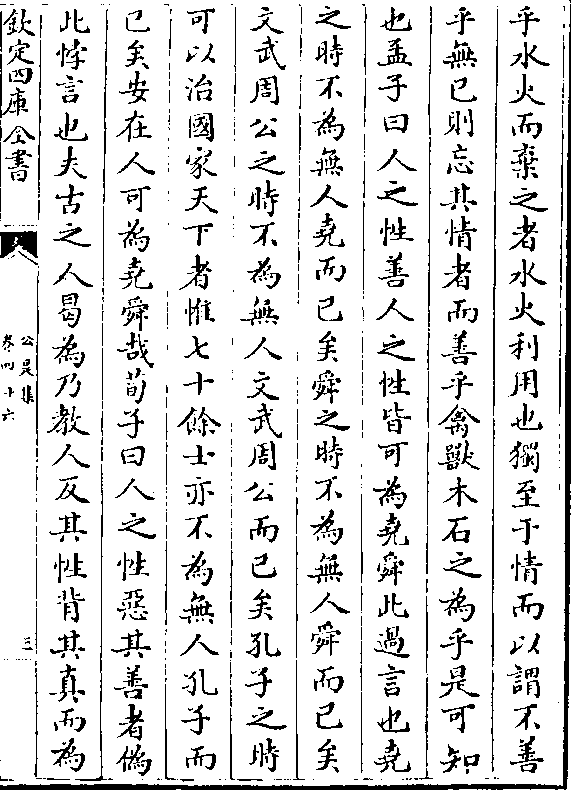 乎水火而棄之者水火利用也獨至于情而以謂不善
乎無已則忘其情者而善乎禽獸木石之為乎是可知
也孟子曰人之性善人之性皆可為堯舜此過言也堯
之時不為無人堯而已矣舜之時不為無人舜而已矣
文武周公之時不為無人文武周公而已矣孔子之時
可以治國家天下者惟七十餘士亦不為無人孔子而
已矣安在人可為堯舜哉荀子曰人之性惡其善者偽
此悖言也夫古之人曷為乃教人反其性背其真而為
欽定四庫全書
公是集
卷四十六
三